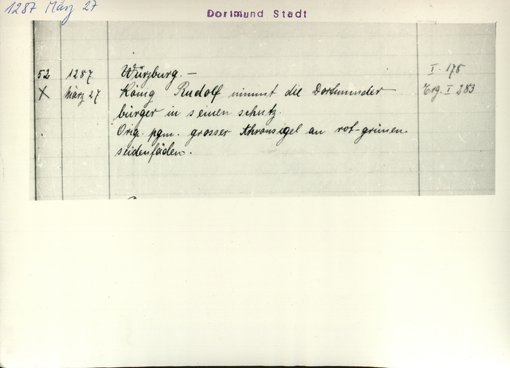 1287 März 27
Dortmund Stadt
52 1287 Würzburg. – I. 175
X März 27 König Rudolf nimmt die Dortmunder Erg. I 283
bürger in seinen schutz.
Orig. pgm. grosser thronsiegel an rot-grünen
seidenfäden.